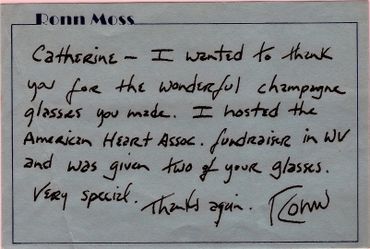 Ronn Moss
Catherine — I wanted to thank
you for the wonderful champagne
glasses you made. I hosted the
American Heart Assoc. fundraiser in WV
and was given two of your glasses.
Very special. Thanks again. Ronn